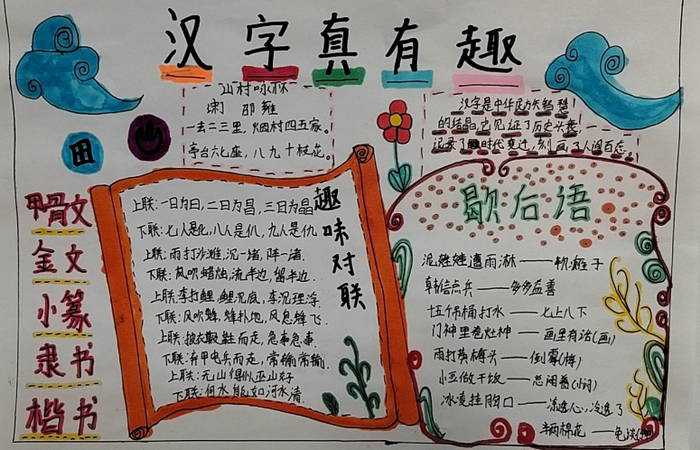 汉字真有趣
山村咏怀
宋 邵雍
一去二三里,烟村四五家。
亭台六七座,八九十枝花。
汉字是中华民族智慧
的结晶,它见证了历史
记录了时代变迁,刻画了人间百态
田
山
甲骨文
金文
小篆
隶书
楷书
趣味对联
上联:一日为日,二日为昌,三日为晶
下联:七人是化,八人是仈,九人是仇
上联:雨打沙滩,沉一堵,陟一渚.
下联:风吹蜡烛,流半边,留半边.
上联:李打鲤,鲤沉底,李沉鲤浮.
下联:风吹蜂,蜂扑地,风息蜂飞.
上联:披衣鞍鞋而走,急事急事.
下联:弃甲曳兵而走,常输常输.
上联:无山得似巫山好
下联:何水能如河水清
歇后语
泥娃娃遭雨淋——
韩信点兵——多多益善
十五个桶打水——七上八下
门神里卷灶神——画里有话(画)
雨打——倒霉(梅)
小豆做干饭——总闷着(闷)
冰凌挂胸口——
半两棉花——免谈(弹)